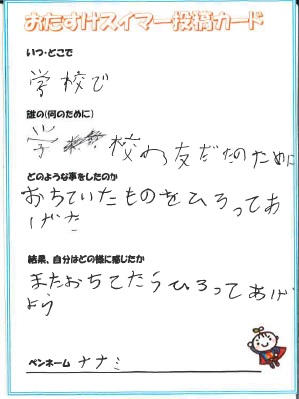 おたすけスイマー投稿カード
いつ・どこで
学校で
誰の(何のために)
学校の友だちのために
どのような事をしたのか
おちていたものをひろってあ
げた
結果、自分はどの様に感じたか
またおちてたらひろってあげ
よう
ペンネーム ナナミ